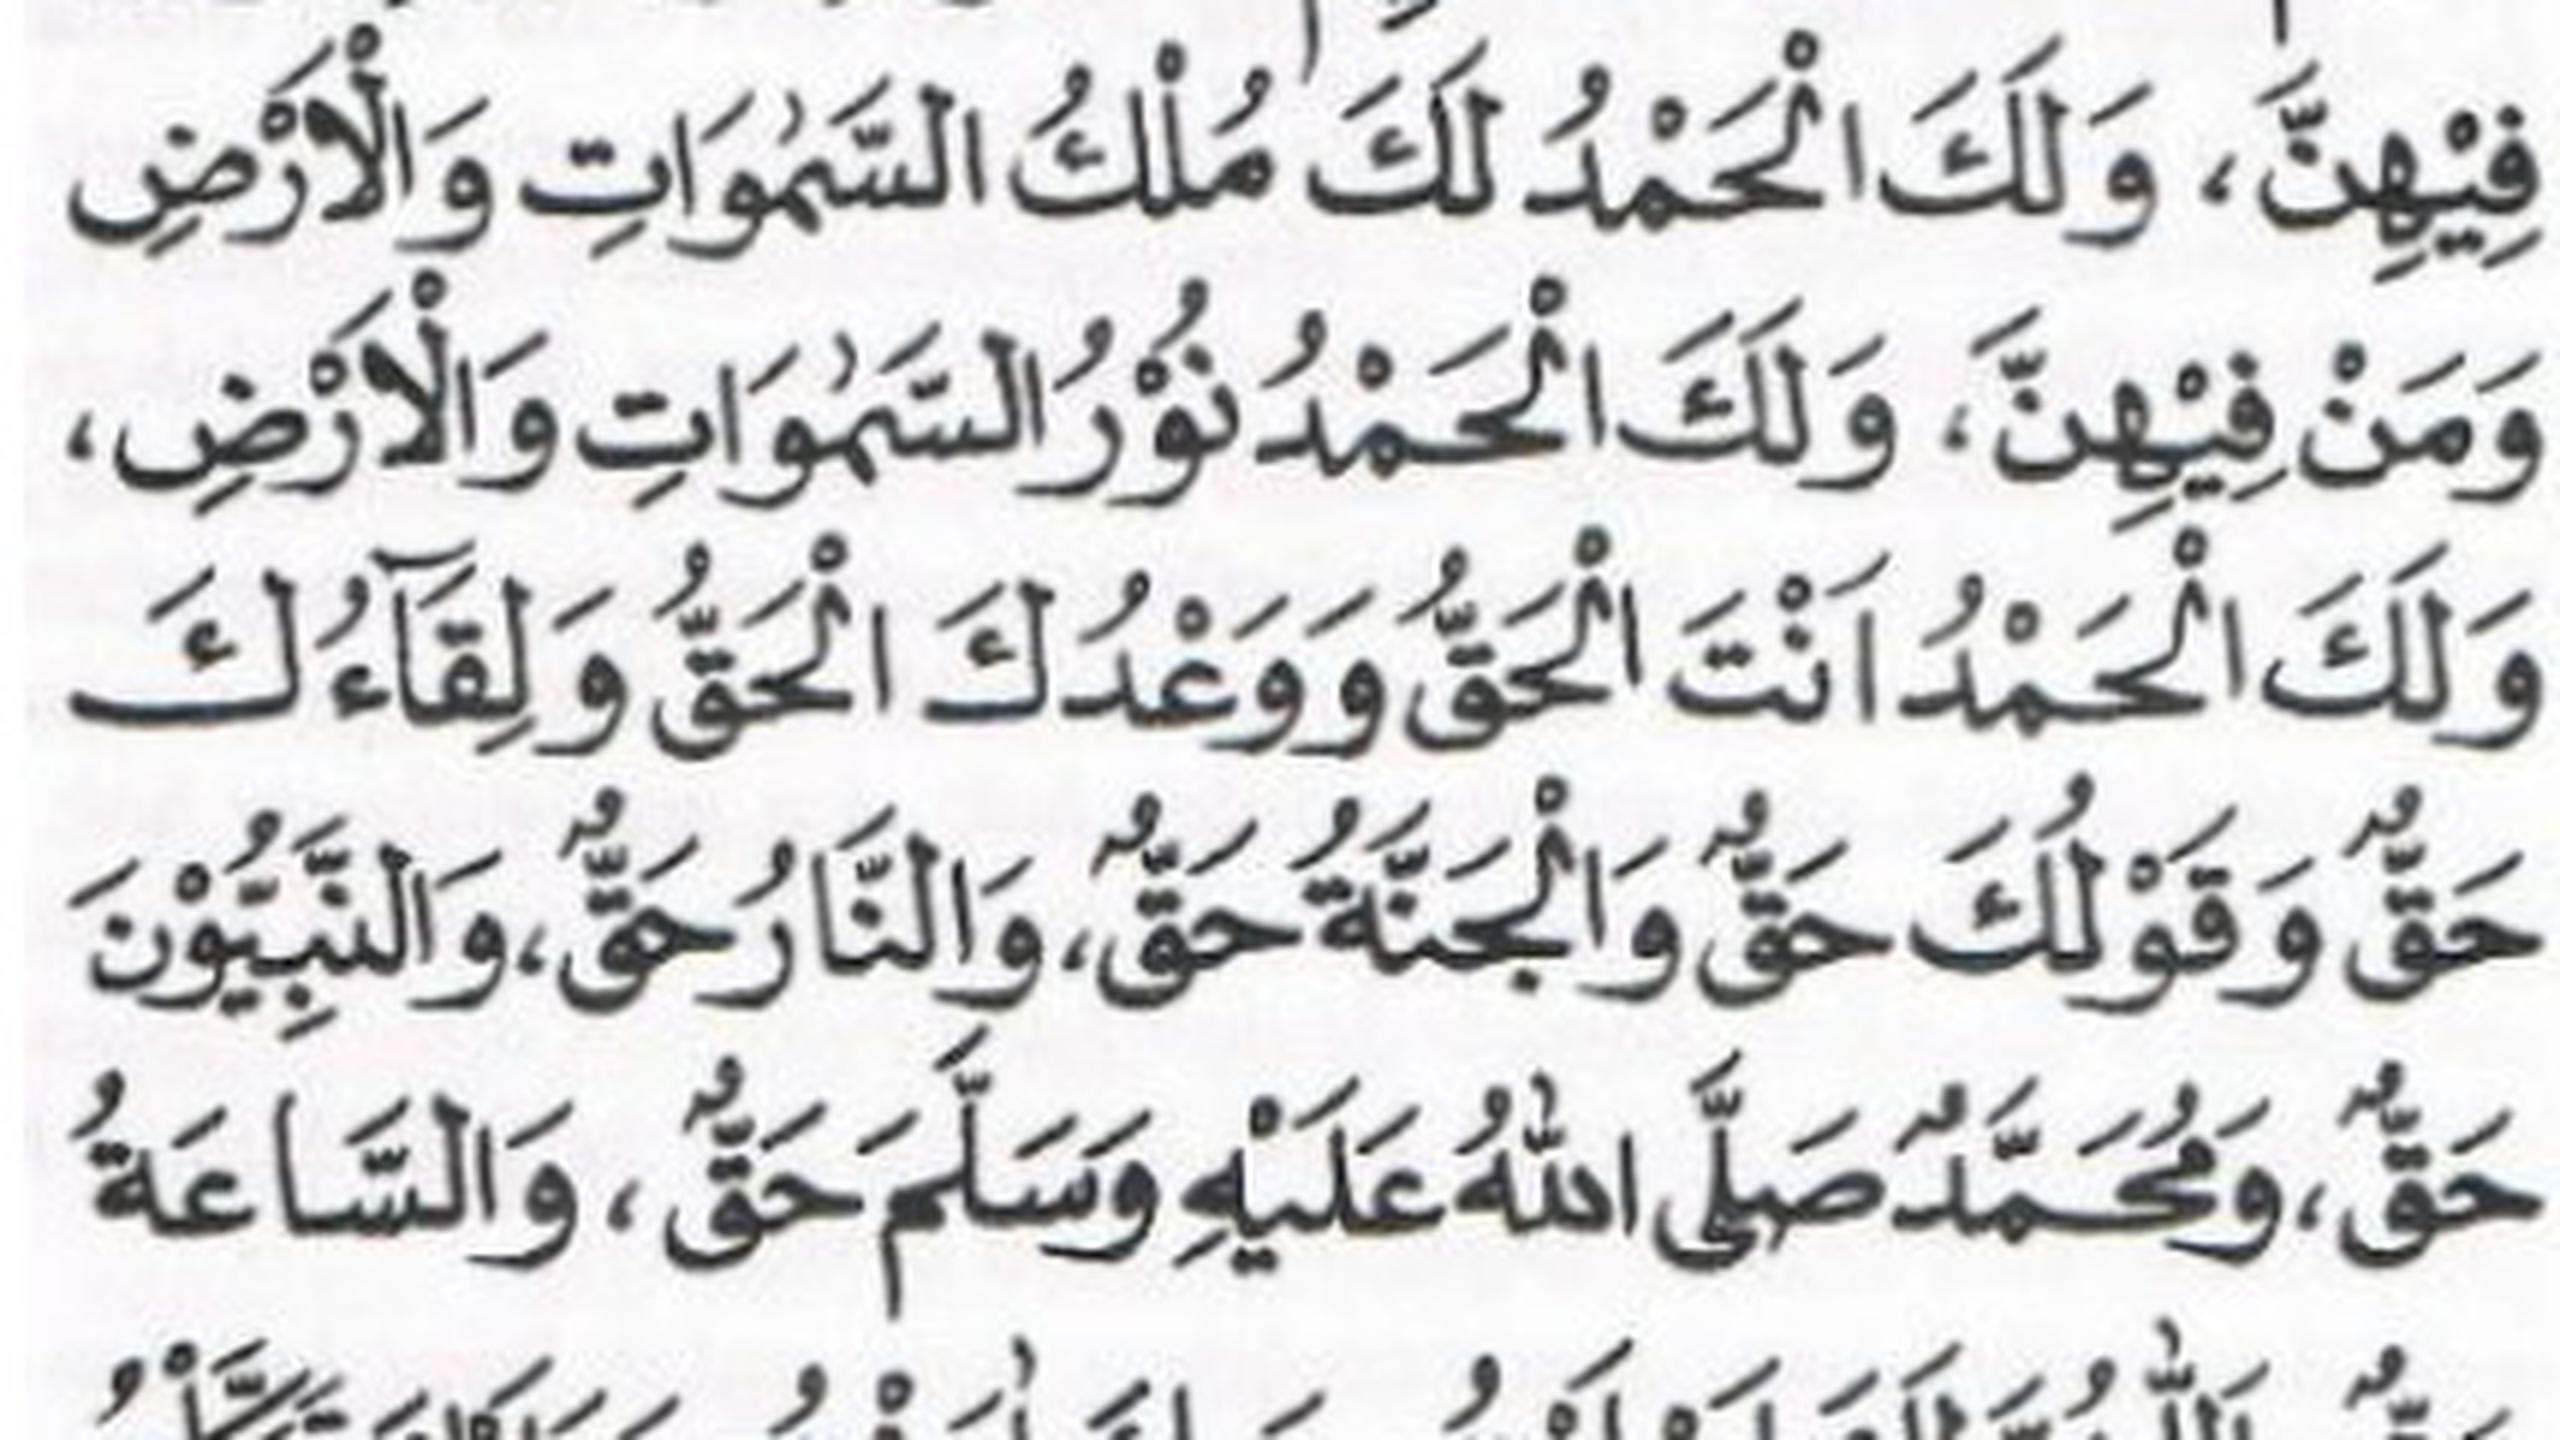 فِيْهِنَّ، وَلَكَ الْحَمْدُ لَكَ مُلْكُ السَّمٰوَاتِ وَالْاَرْضِ
وَمَنْ فِيْهِنَّ، وَلَكَ الْحَمْدُ نُوْرُ السَّمٰوَاتِ وَالْاَرْضِ،
وَلَكَ الْحَمْدُ اَنْتَ الْحَقُّ وَوَعْدُكَ الْحَقُّ وَلِقَآءُكَ
حَقٌّ وَقَوْلُكَ حَقٌّ وَالْجَنَّةُ حَقٌّ، وَالنَّارُ حَقٌّ، وَالنَّبِيُّوْنَ
حَقٌّ، وَمُحَمَّدٌ صَلَّى اللهُ عَلَيْهِ وَسَلَّمَ حَقٌّ، وَالسَّاعَةُ